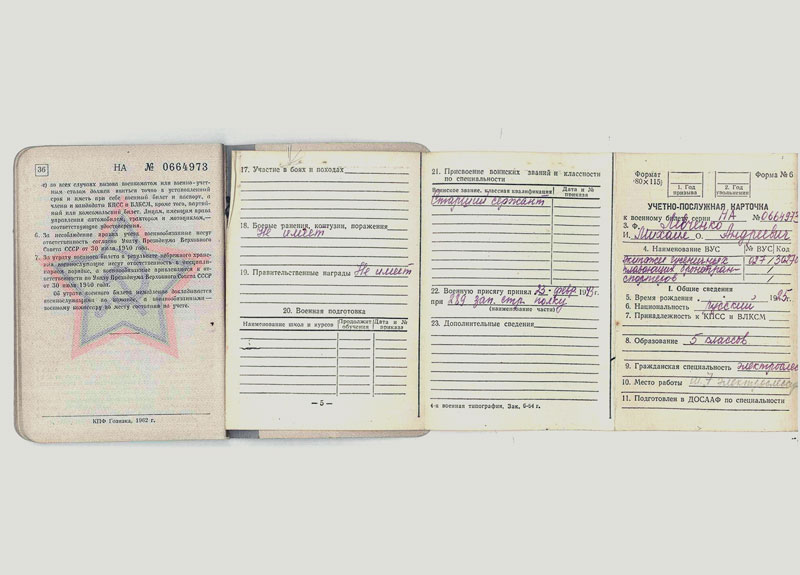 36
НА № 0664973
е) во всех случаях вызова военкоматом или военно-учет-
ным столом должен явиться точно в установленный
срок и иметь при себе военный билет и паспорт, а
члены и кандидаты КПСС и ВЛКСМ, кроме того, партий-
ный или комсомольский билет. Лицам, имеющим права
управления автомобилем, трактором и мотоциклом,—
соответствующие удостоверения.
6. За несоблюдение правил учета военнообязанные несут
ответственность согласно Указу Президиума Верховного
Совета СССР от 30 июля 1940 года.
7. За утрату военного билета в результате небрежного хране-
ния, военнослужащие несут ответственность в дисципли-
нарном порядке, а военнообязанные привлекаются к от-
ветственности по Указу Президиума Верховного Совета СССР
от 30 июля 1940 года.
Об утрате военного билета немедленно докладывается
военнослужащими по команде, а военнообязанными —
военному комиссару по месту состояния на учете.
КПФ Гознака, 1962 г.
17. Участие в боях и походах
18. Боевые ранения, контузии, поражения
Не имеет
19. Правительственные награды Не имеет
20. Военная подготовка
Наименование школ и курсов
Продолжит. обучения
Дата и № приказа
— 5 —
21. Присвоение воинских званий и классности
по специальности
Воинское звание, классная квалификация
Дата и № приказа
Старший сержант
22. Военную присягу принял 23. февр 1943г.
при 189 зап. стр. полку
(наименование части)
23. Дополнительные сведения
4-я военная типография, Зак. 6-64 г.
Формат
80×115)
Форма № 6
1. Год призыва
2. Год увольнения
УЧЕТНО-ПОСЛУЖНАЯ КАРТОЧКА
к военному билету серии НА № 0664973
3. Ф.
И. Михаил О. Андреевич
4. Наименование ВУС
№ ВУС
Код
плавающих бронетран-
спортеров
I. Общие сведения
5. Время рождения 1925г.
6. Национальность русский
7. Принадлежность к КПСС и ВЛКСМ
8. Образование 5 классов
9. Гражданская специальность электрослес
10. Место работы
11. Подготовлен в ДОСААФ по специальности